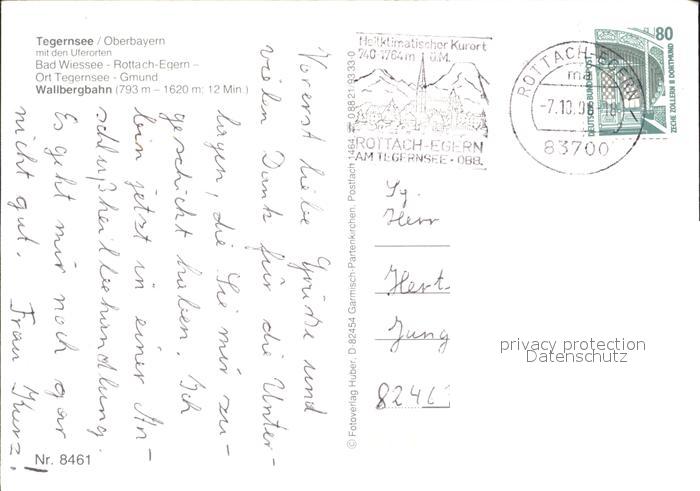 Tegernsee / Oberbayern
mit den Uferorten
Bad Wiessee - Rottach-Egern –
Ort Tegernsee - Gmund
Wallbergbahn (793 m – 1620 m: 12 Min.)
Vorerst liebe Grüße und
vielen Dank für die Unter-
lagen, die Sie mir zu-
geschickt haben. Ich
bin jetzt in einer An-
schlußheilbehandlung.
Es geht mir noch gar
nicht gut. Frau Kurz!
Nr. 8461
© Fotoverlag Huber, D-82454 Garmisch-Partenkirchen, Postfach 1464
Heilklimatischer Kurort
740-1764 m ü.M.
ROTTACH-EGERN
AM TEGERNSEE - OBB.
ROTTACH-EGERN
-7.10.96
83700
80
DEUTSCHE BUNDESPOST
ZECHE ZOLLERN II DORTMUND
Herr
Jung
privacy protection
Datenschutz